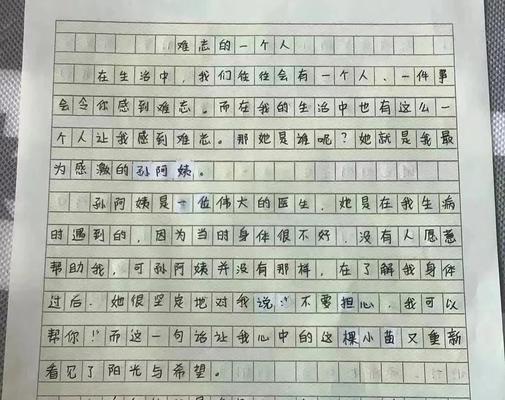 难忘的一个人
在生活中，我们往往会有一个人、一件事
会令你感到难忘。而在我的生活中也有这么一
个人让我感到难忘。那她是谁呢？她就是我最
为感激的孙阿姨。
孙阿姨是一位伟大的医生，她是在我生病
时遇到的，因为当时身体很不好，没有人愿意
帮助我，可孙阿姨并没有那样，在了解我身体
过后，她很坚定地对我说：“不要担心，我可以
帮你！”而这一句话让我心中的这棵小苗又重新
看见了阳光与希望。